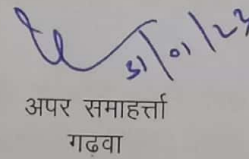 31/01/23
अपर समाहर्त्ता
गढवा